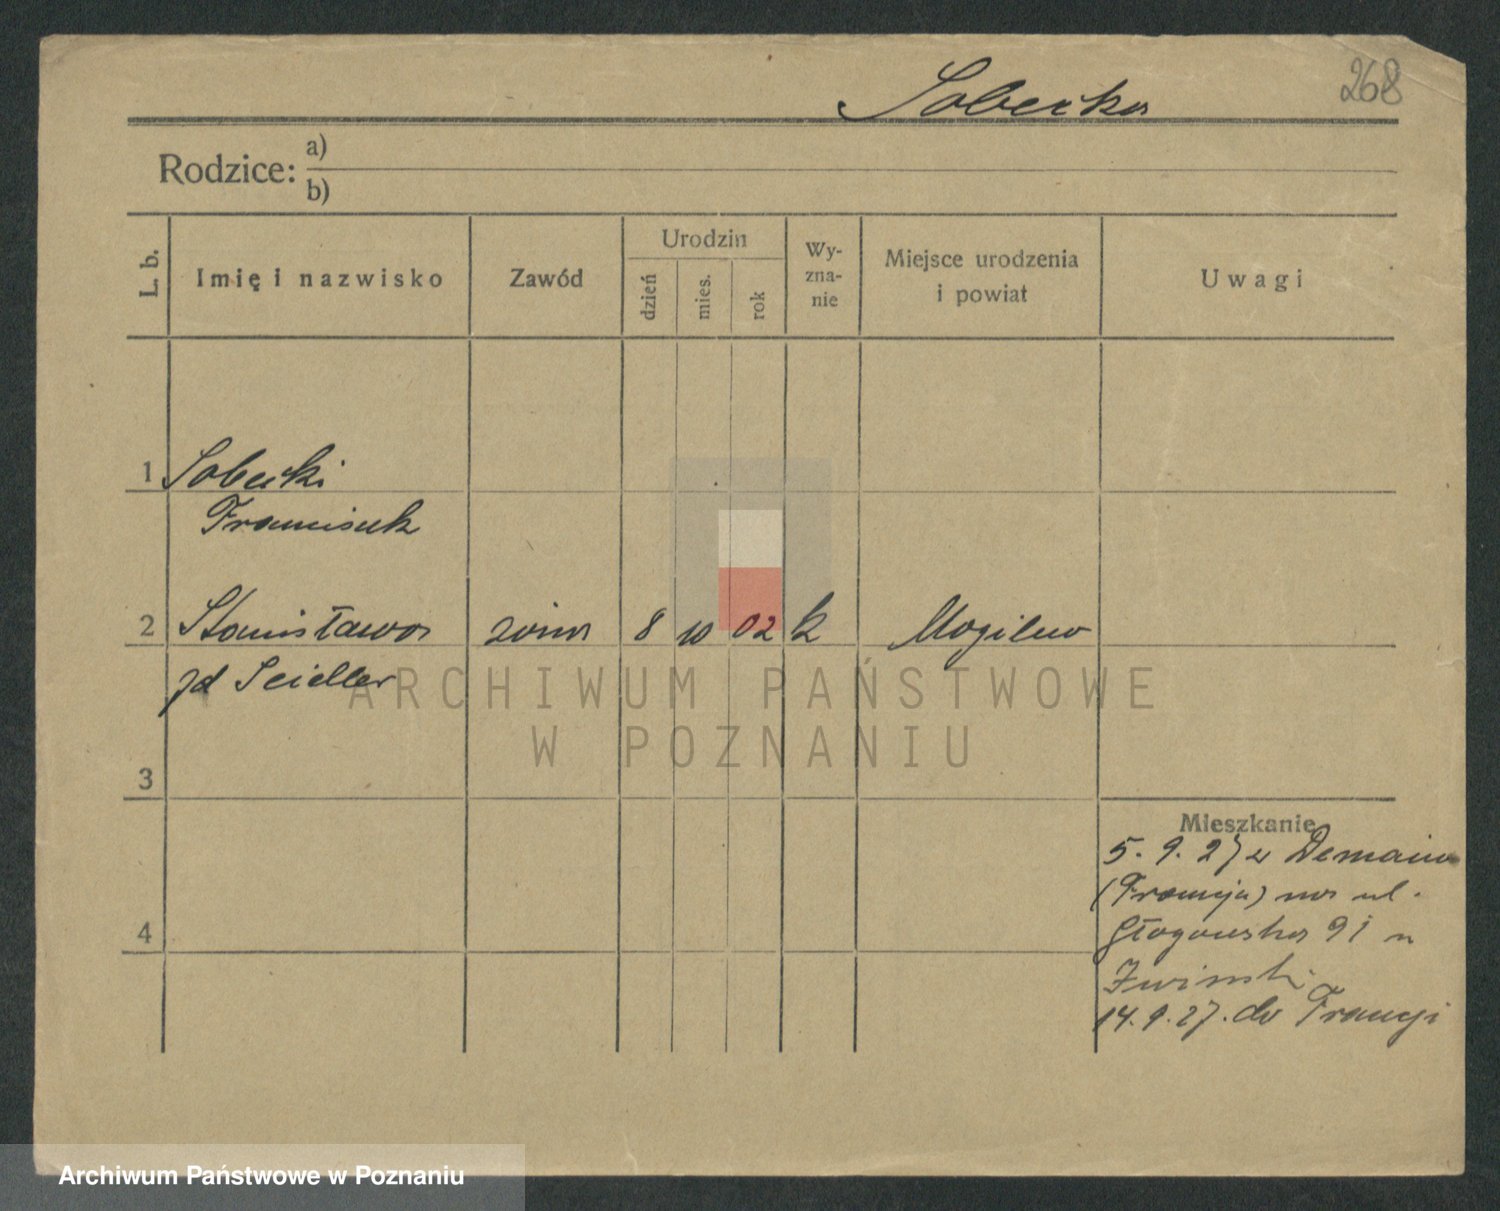 268
Sobecka
Rodzice: a)
b)
L. b.
Imię i nazwisko
Zawód
Urodzin
dzień
mies.
rok
Wy-
zna-
nie
Miejsce urodzenia
i powiat
Uwagi
1 Sobecki
Franciszek
2 Stanisława żona 8 10 02 k Mogilno
zd Seidler
ARCHIWUM PAŃSTWOWE
W POZNANIU
3
4
Mieszkanie
5. 9. 27 z Demain
(Francja) na ul.
Głogowska 91 u
14. 9. 27. do Francji
Archiwum Państwowe w Poznaniu